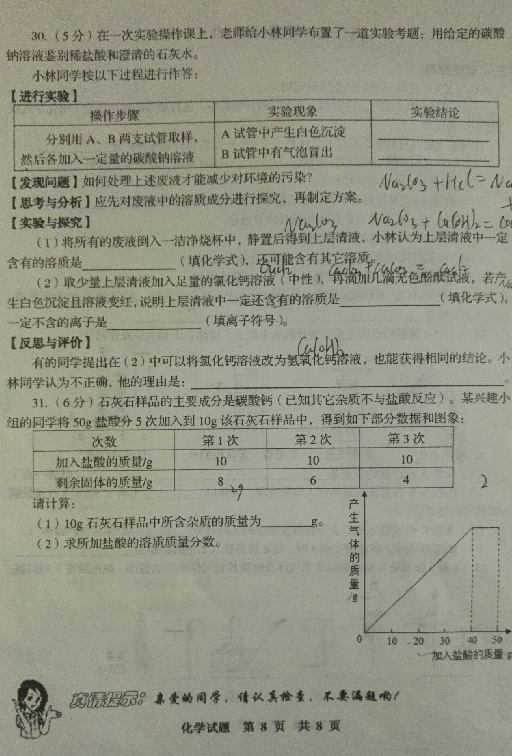 30.(5分)在一次实验操作课上,老师给小林同学布置了一道实验考题:用给定的碳酸
钠溶液鉴别稀盐酸和澄清的石灰水。
小林同学按以下过程进行作答:
【进行实验】
操作步骤 实验现象 实验结论
分别用A、B两支试管取样, A试管中产生白色沉淀
然后各加入一定量的碳酸钠溶液 B试管中有气泡冒出
【发现问题】如何处理上述废液才能减少对环境的污染?
Na₂CO₃+HCl=Na
【思考与分析】应先对废液中的溶质成分进行探究,再制定方案。
【实验与探究】 Na₂CO₃ Na₂CO₃+Ca(OH)₂=Ca
(1)将所有的废液倒入一洁净烧杯中,静置后得到上层清液,小林认为上层清液中一定
含有的溶质是____(填化学式),还可能含有其它溶质。
(2)取少量上层清液加入足量的氯化钙溶液(中性),再滴加几滴无色酚酞试液,若产
生白色沉淀且溶液变红,说明上层清液中一定还含有的溶质是____(填化学式),
一定不含的离子是____(填离子符号)。
【反思与评价】 Ca(OH)₂
有的同学提出在(2)中可以将氯化钙溶液改为氢氧化钙溶液,也能获得相同的结论。小
林同学认为不正确,他的理由是:____。
31.(6分)石灰石样品的主要成分是碳酸钙(已知其它杂质不与盐酸反应)。某兴趣小
组的同学将50g盐酸分5次加入到10g该石灰石样品中,得到如下部分数据和图象:
次数 第1次 第2次 第3次
加入盐酸的质量/g 10 10 10
剩余固体的质量/g 8 6 4
2g
2
请计算:
(1)10g石灰石样品中所含杂质的质量为____g。
(2)求所加盐酸的溶质质量分数。
产生气体的质量g
0 10 20 30 40 50
加入盐酸的质量g
真情提示:亲爱的同学,请认真检查,不要漏题哟!
化学试题 第8页 共8页